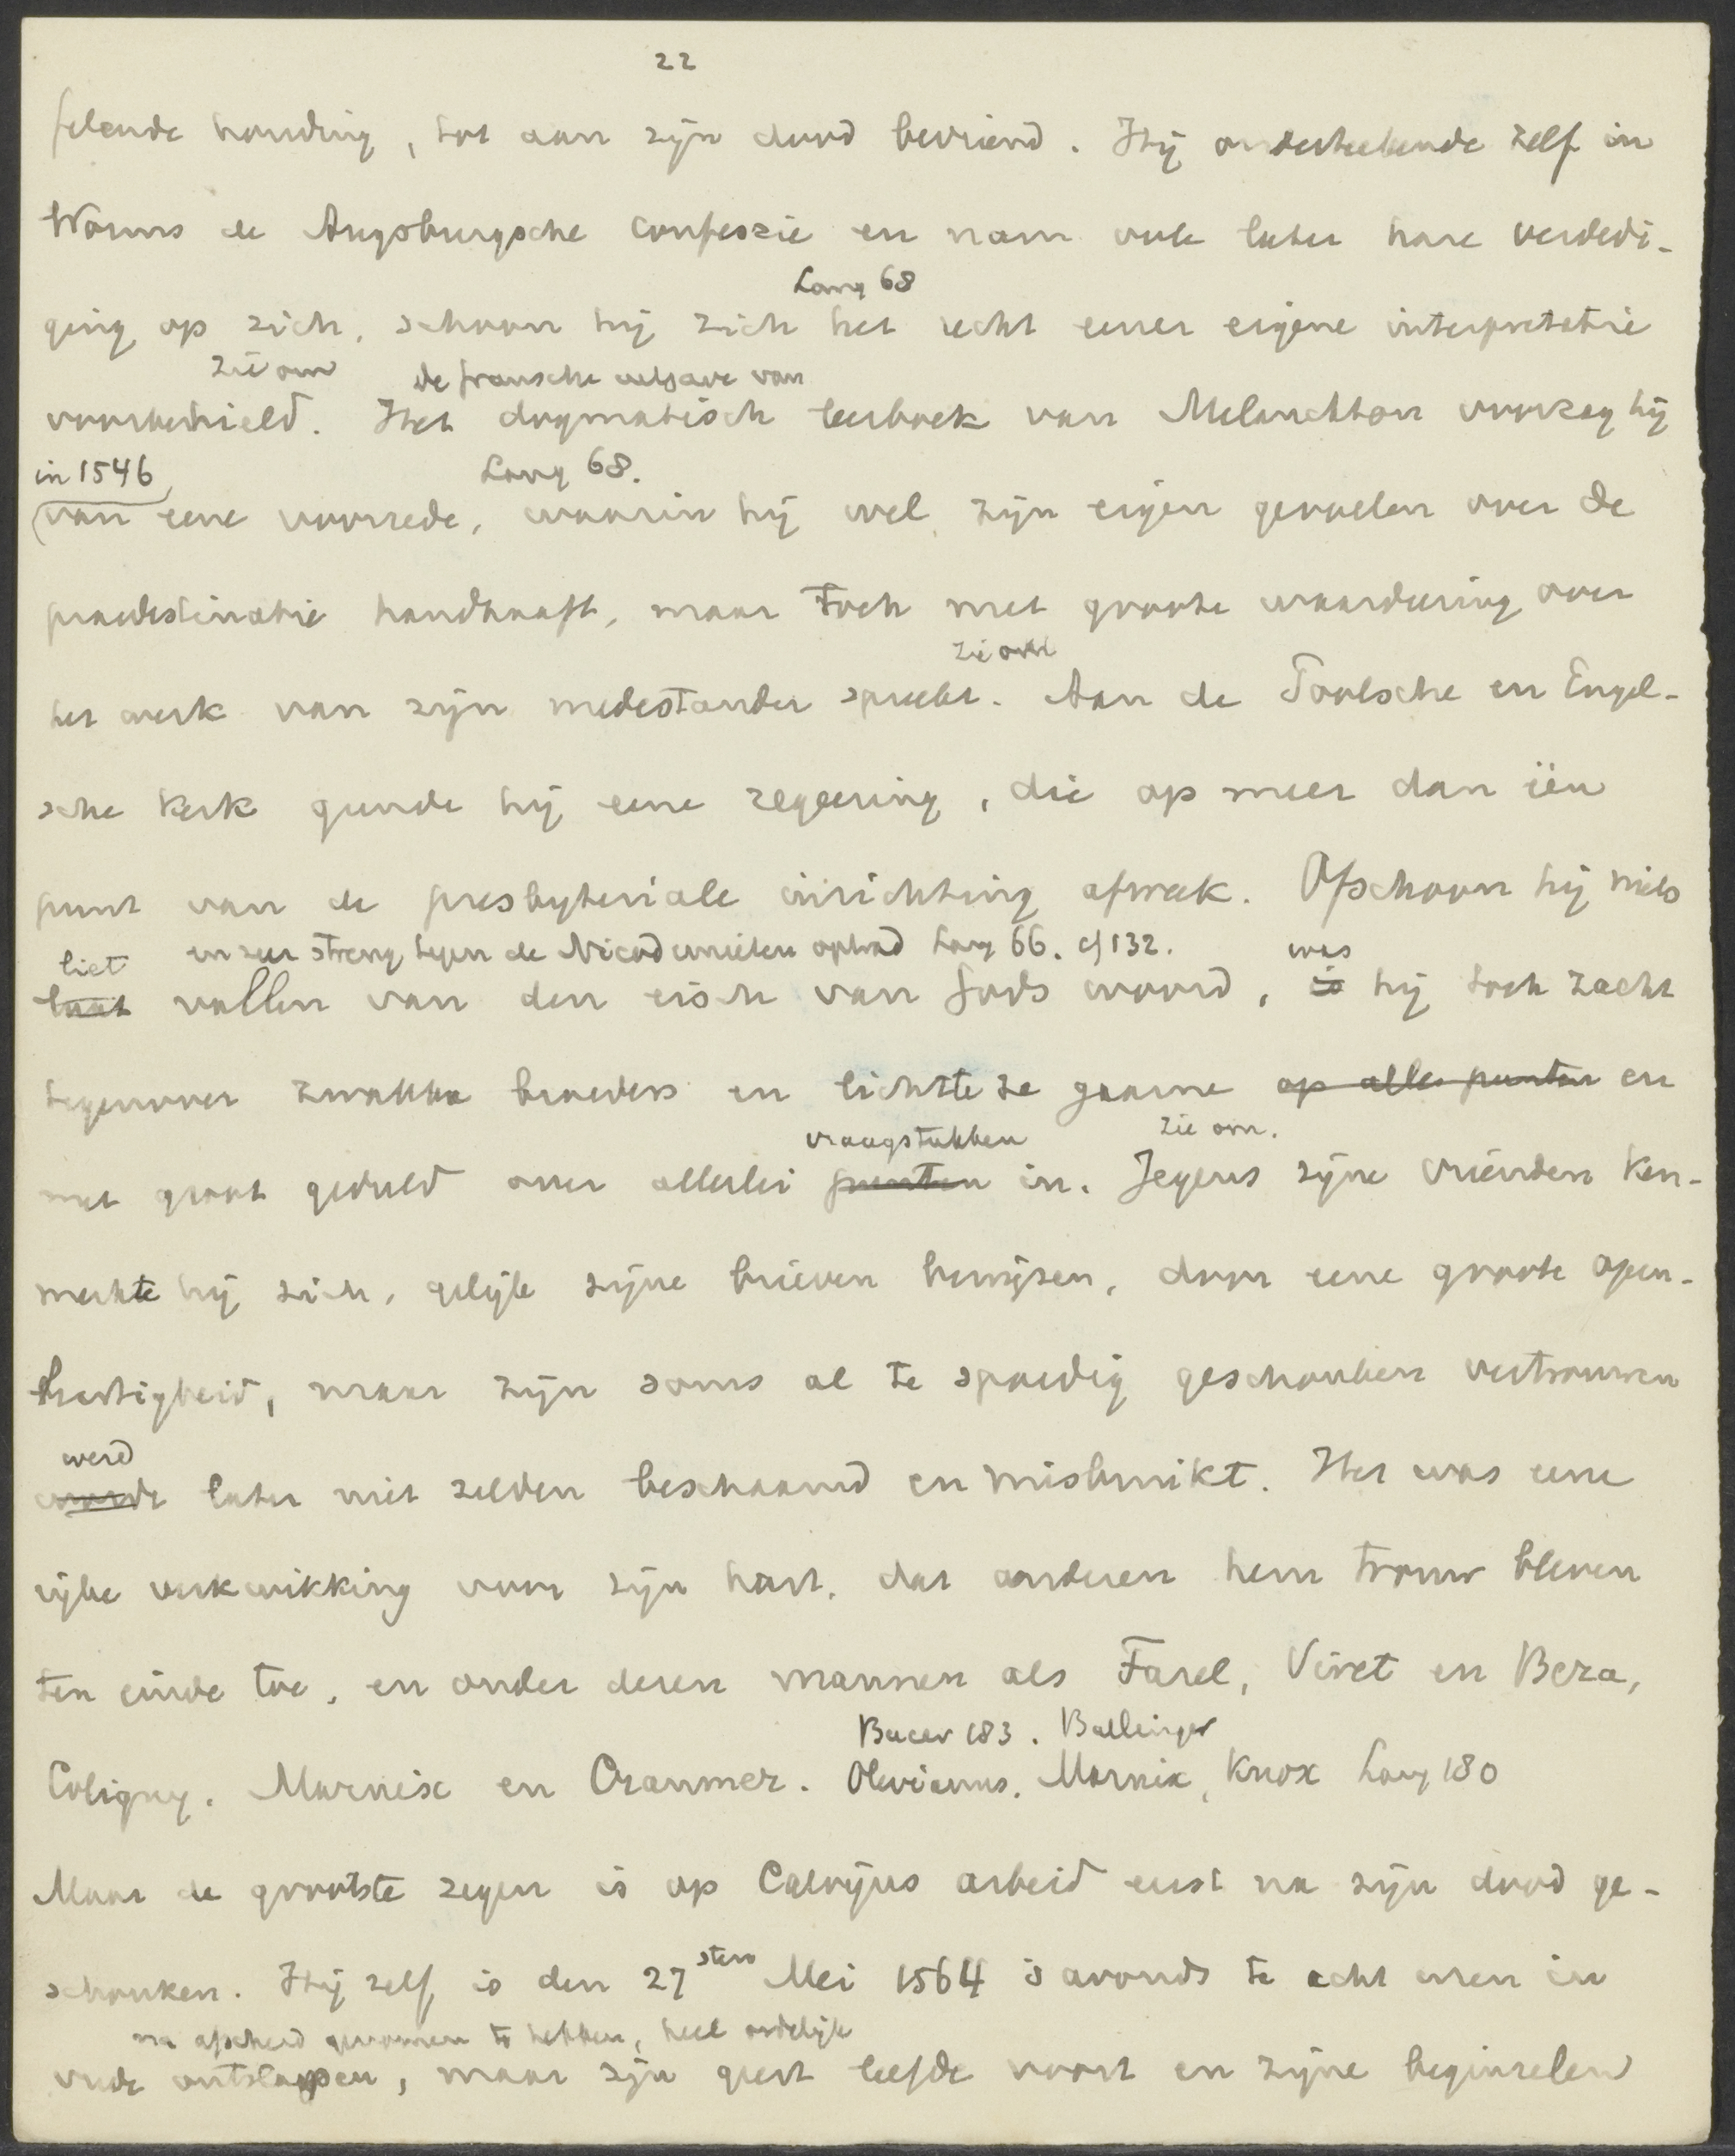 22
felende houding, tot aan zijn dood bevriend. Hij onderteekende zelf in
Worms de Augsburgsche Confessie en nam ook later hare verdedi-
Lang 68
ging op zich, schoon hij zich het recht eener eigene interpretatie
zie om de fransche uitgave van
voorbehield. Het dogmatisch leerboek van Melanchton voorzag hij
in 1546 Lang 68.
van eene voorrede, waarin hij wel zijn eigen gevoelen over de
praedestinatie handhaaft, maar toch met groote waardeering over
zie om
het werk van zijn medestander spreekt. Aan de Poolsche en Engel-
sche Kerk gunde hij eene regeering, die op meer dan één
punt van de presbyteriale inrichting afweek. Ofschoon hij niets
liet en zeer streng tegen de Nicodemieten optrad Lang 66. cf 132. was
laat vallen van den eisch van Gods woord, is hij toch zacht
tegenover zwakke broeders en lichtte ze gaarne op alle punten en
vraagstukken zie om.
met groot geduld over allerlei punten in. Jegens zijne vrienden ken-
merkte hij zich, gelijk zijne brieven bewijzen, door eene groote open-
hartigheid, maar zijn soms al te spoedig geschonken vertrouwen
werd
werde later niet zelden beschaamd en misbruikt. Het was eene
rijke verkwikking voor zijn hart, dat anderen hem trouw bleven
ten einde toe, en onder dezen mannen als Farel, Viret en Beza,
Bucer 183. Bullinger
Coligny, Marnix en Cranmer. Olevianus, Marnix, Knox Lang 180
Maar de grootste zegen is op Calvijns arbeid eerst na zijn dood ge-
schonken. Hij zelf is den 27sten Mei 1564 's avonds te acht uren in
na afscheid genomen te hebben, heel ordelijk
vrede ontslapen, maar zijn geest leefde voort en zijne beginselen